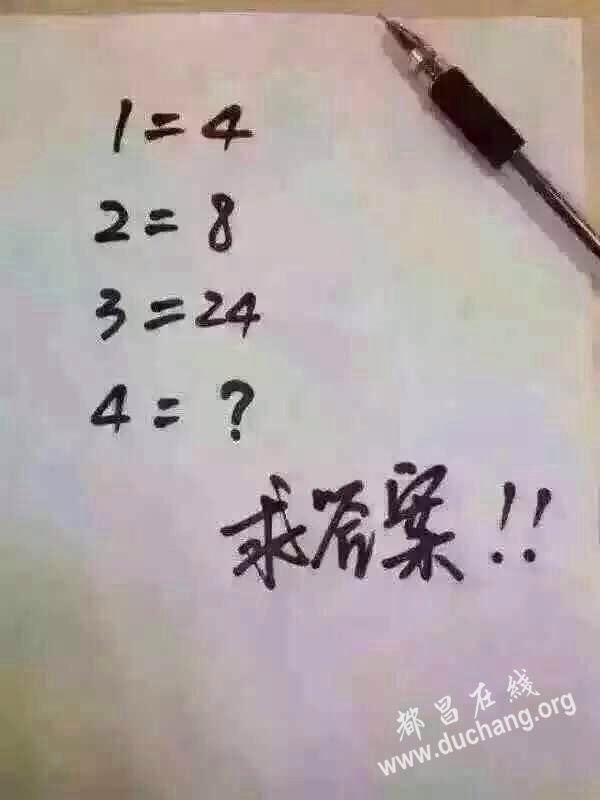 1=4
2=8
3=24
4=?
求答案!!
都昌在線
www.duchang.org